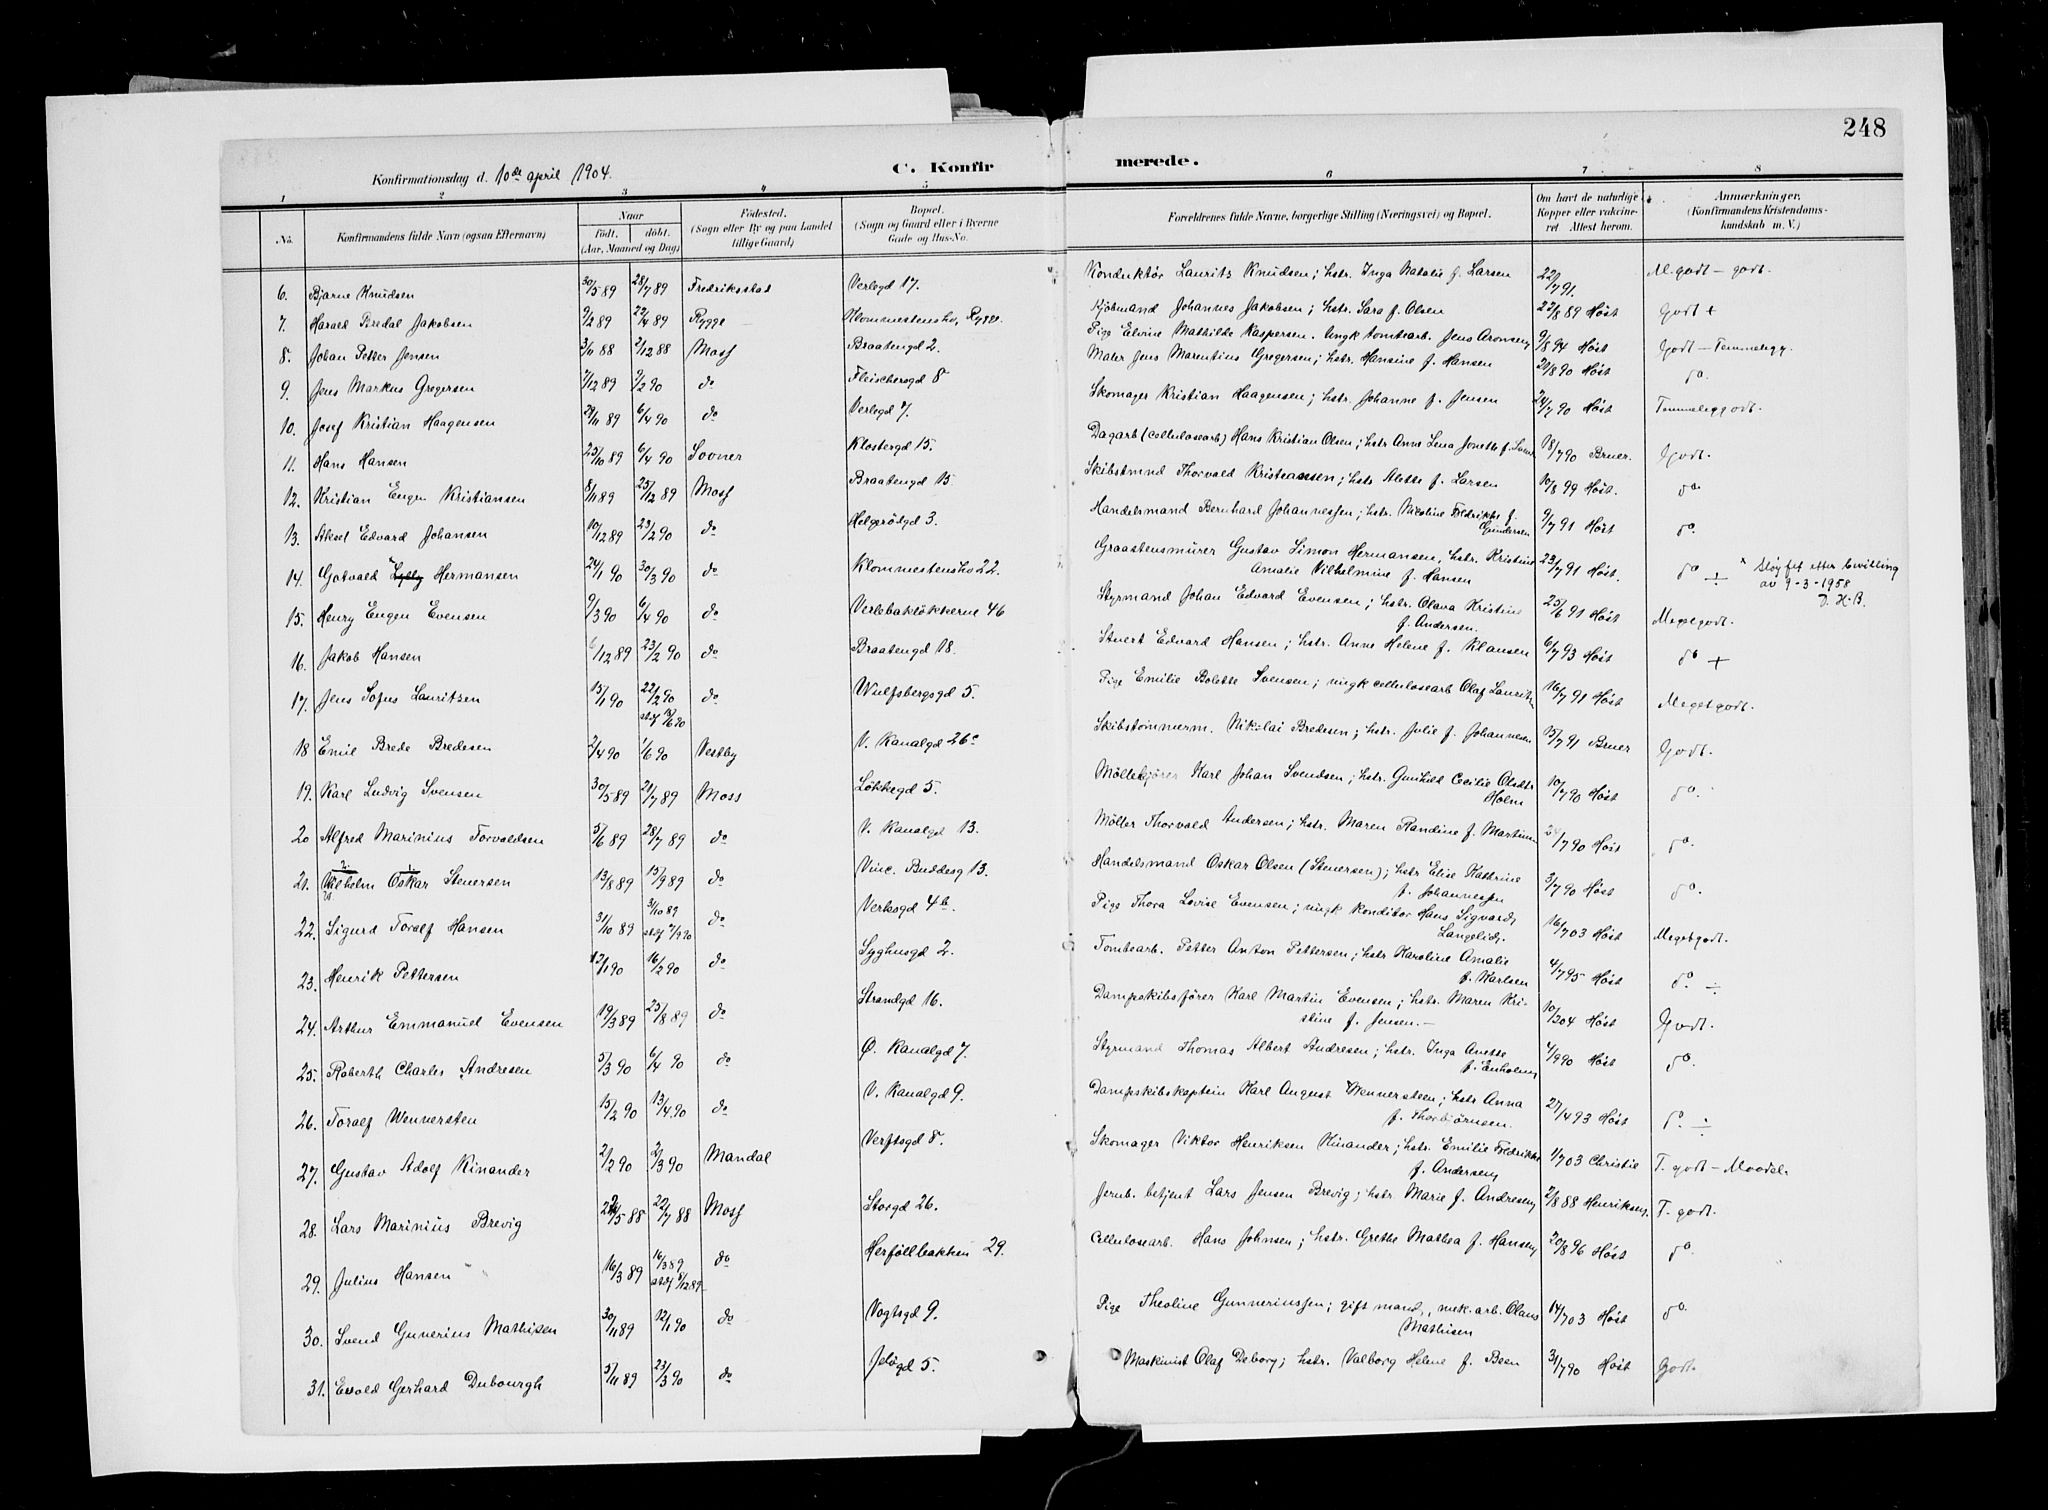 248
Konfirmationsdag d. 10de april 1904. C. Konfirmerede.
1 2 3 4 5 6 7 8
No. Konfirmandens fulde Navn (ogsaa Efternavn) Naar Födt. döbt. (Aar, Maaned og Dag) Födested. (Sogn eller By og paa Landet tillige Gaard) Bopæl. (Sogn og Gaard eller i Byerne Gade og Hus-No. Forældrenes fulde Navne, borgerlige Stilling (Næringsvei) og Bopæl. Om havt de naturlige Kopper eller vaccineret Attest herom. Anmærkninger. (Konfirmandens Kristendomskundskab m. V.)
6. Bjarne Knudsen 30/5 89 28/7 89 Fredriksstad Verlegd 17. Konduktør Laurits Knudsen; hstr. Inga Natalie f. Larsen 22/7 91. M godt - godt.
7. Harald Bredal Jakobsen 9/2 89 23/4 89 Rygge Klommestenshv, Rygge. Kjöbmand Johannes Jakobsen; hstr. Sara f. Olsen 23/8 89 Höst Godt +
8. Johan Petter Jensen 3/11 88 2/12 88 Moss Braatengd 2. Pige Elvine Mathilde Kaspersen. Ungk tomtearb. Jens Aronsen 9/8 94 Höst Godt - Temmelegg.
9. Jens Markus Gregersen 7/12 89 9/2 90 do Fleischersgd 8 Maler Jens Marentius Gregersen; hstr. Hansine f. Hansen 20/8 90 Höst do.
10. Josef Kristian Haagensen 29/11 89 6/4 90 do Verlegd 7. Skomager Kristian Haagensen; hstr. Johanne f. Jensen 24/7 90 Höst Temmeleggodt.
11. Hans Hansen 25/10 89 6/4 90 Sovner Klostergd 15. Dagarb (cellulosearb) Hans Kristian Olsen; hstr Anne Lena Jonette f. 18/7 90 Bruer. Godt.
12. Kristian Eugen Kristiansen 8/11 89 25/12 89 Moss Braatengd 15. Skibstmnd Thorvald Kristiansen; hstr Alette f. Larsen 10/8 99 Höst. do
13. Aksel Edvard Johansen 10/12 89 23/2 90 do Helgerödgd 3. Handelsmand Bernhard Johannessen; hstr. Nicoline Fredrikke f.
Gundersen 9/7 91 Höst do.
14. Gotvald Lylly Hermansen 24/1 90 30/3 90 do Klommestenshv 22. Graastensmurer Gustav Simon Hermansen, hstr. Kristine
Amalie Vilhelmine f. Hansen 23/7 91 Höst. do ÷ × Slöyfet etter bevilling
av 9-3-1958
D. H-B.
15. Henry Eugen Evensen 9/3 90 6/4 90 do Verlebakløkkerne 46 Styrmand Johan Edvard Evensen; hstr. Olava Kristine
f. Andersen. 25/6 91 Höst Megetgodt.
16. Jakob Hansen 6/12 89 23/2 90 do Braatengd 18. Stuert Edvard Hansen; hstr. Anne Helene f. Klausen 6/7 93 Höst do +
17. Jens Sofus Lauritzen 15/1 90 22/2 90 do Wulfsbergsgd 5. Pige Emilie Bolette Svensen; ungk cellulosearb Olaf Lauritzen 16/7 91 Höst Megetgodt.
18 Emil Brede Bredesen 2/4 90 1/6 90 Vestby V. Kanalgd 26c Skibstømmerm. Nikolai Bredesen; hstr. Julie f. Johannesen 15/7 91 Bruer Godt.
19. Karl Ludvig Svensen 30/5 89 21/7 89 Moss Lökkegd 5. Möllekjörer Karl Johan Svendsen; hstr. Gunhild Cecilie Olsdtr
Holm 10/7 90 Höst do.
20 Alfred Marinius Torvaldsen 5/6 89 28/7 89 do V. Kanalgd 13. Möller Thorvald Andersen; hstr. Maren Randine f. Martins 7 90 Höst do.
21. Vilhelm Oskar Stenersen 13/8 89 15/9 89 do Vinc. Buddesg 13. Handelsmand Oskar Olsen (Stenersen); hstr Elise Kathrine
f. Johannessen 3/7 90 Höst do.
22. Sigurd Toralf Hansen 31/10 89 31/10 89 do Verksgd 4b. Pige Thora Lovise Evensen; ungk konditor Hans Sigvard
Langelid. 16/7 03 Höst Megetgodt.
23. Henrik Pettersen 12/1 90 16/2 90 do Syghusgd 2. Tomtearb. Petter Anton Pettersen; hstr Karoline Amalie
f. Karlsen 4/7 95 Höst do. ÷
24. Arthur Emmanuel Evensen 19/3 89 25/8 89 do Strandgd 16. Dampskibsfører Karl Martin Evensen; hstr. Maren Kristine
f. Jensen.- 10/3 04 Höst Godt.
25. Roberth Charles Andresen 5/3 90 6/4 90 do Ø. Kanalgd 7. Styrmand Thomas Albert Andresen; hstr. Inga Anette
f. Enholm 4/9 90 Höst do.
26. Toralf Wennersten 15/2 90 13/4 90 do V. Kanalgd 9. Dampskibskaptein Karl August Wennersteen; hstr Anna
f. Thorbjørnsen. 27/4 93 Höst do ÷
27. Gustav Adolf Kinander 2/2 90 2/3 90 Mandal Verftsgd 8. Skomager Viktor Henriksen Kinander; hstr. Emilie Fredrikke
f. Andersen 1/7 03 Christie T. godt - Maadel.
28. Lars Marinius Brevig 5 88 22/7 88 Moss Storgd 26. Jernb. betjent Lars Jensen Brevig; hstr. Marie f. Andresen 2/8 88 Henriksen. T. godt.
29. Julius Hansen 16/3 89 16/3 89 stdf 8/12 89 do Herföllbakken 29. Cellulosearb. Hans Johnsen; hstr. Grethe Mathea f. Hansen 20/8 96 Höst do.
30. Svend Gunerius Mathisen 30/11 89 12/1 90 do Vogtsgd 9. Pige Theoline Gunneriussen; gift mand, mek. arb. Olaus
Mathisen 14/7 03 Höst do.
31. Evald Gerhard Dubourgh 5/11 89 23/3 90 do Jelögd 5. Maskinist Olaf Deborg; hstr. Valborg Helene f. Been 31/7 90 Höst Godt.